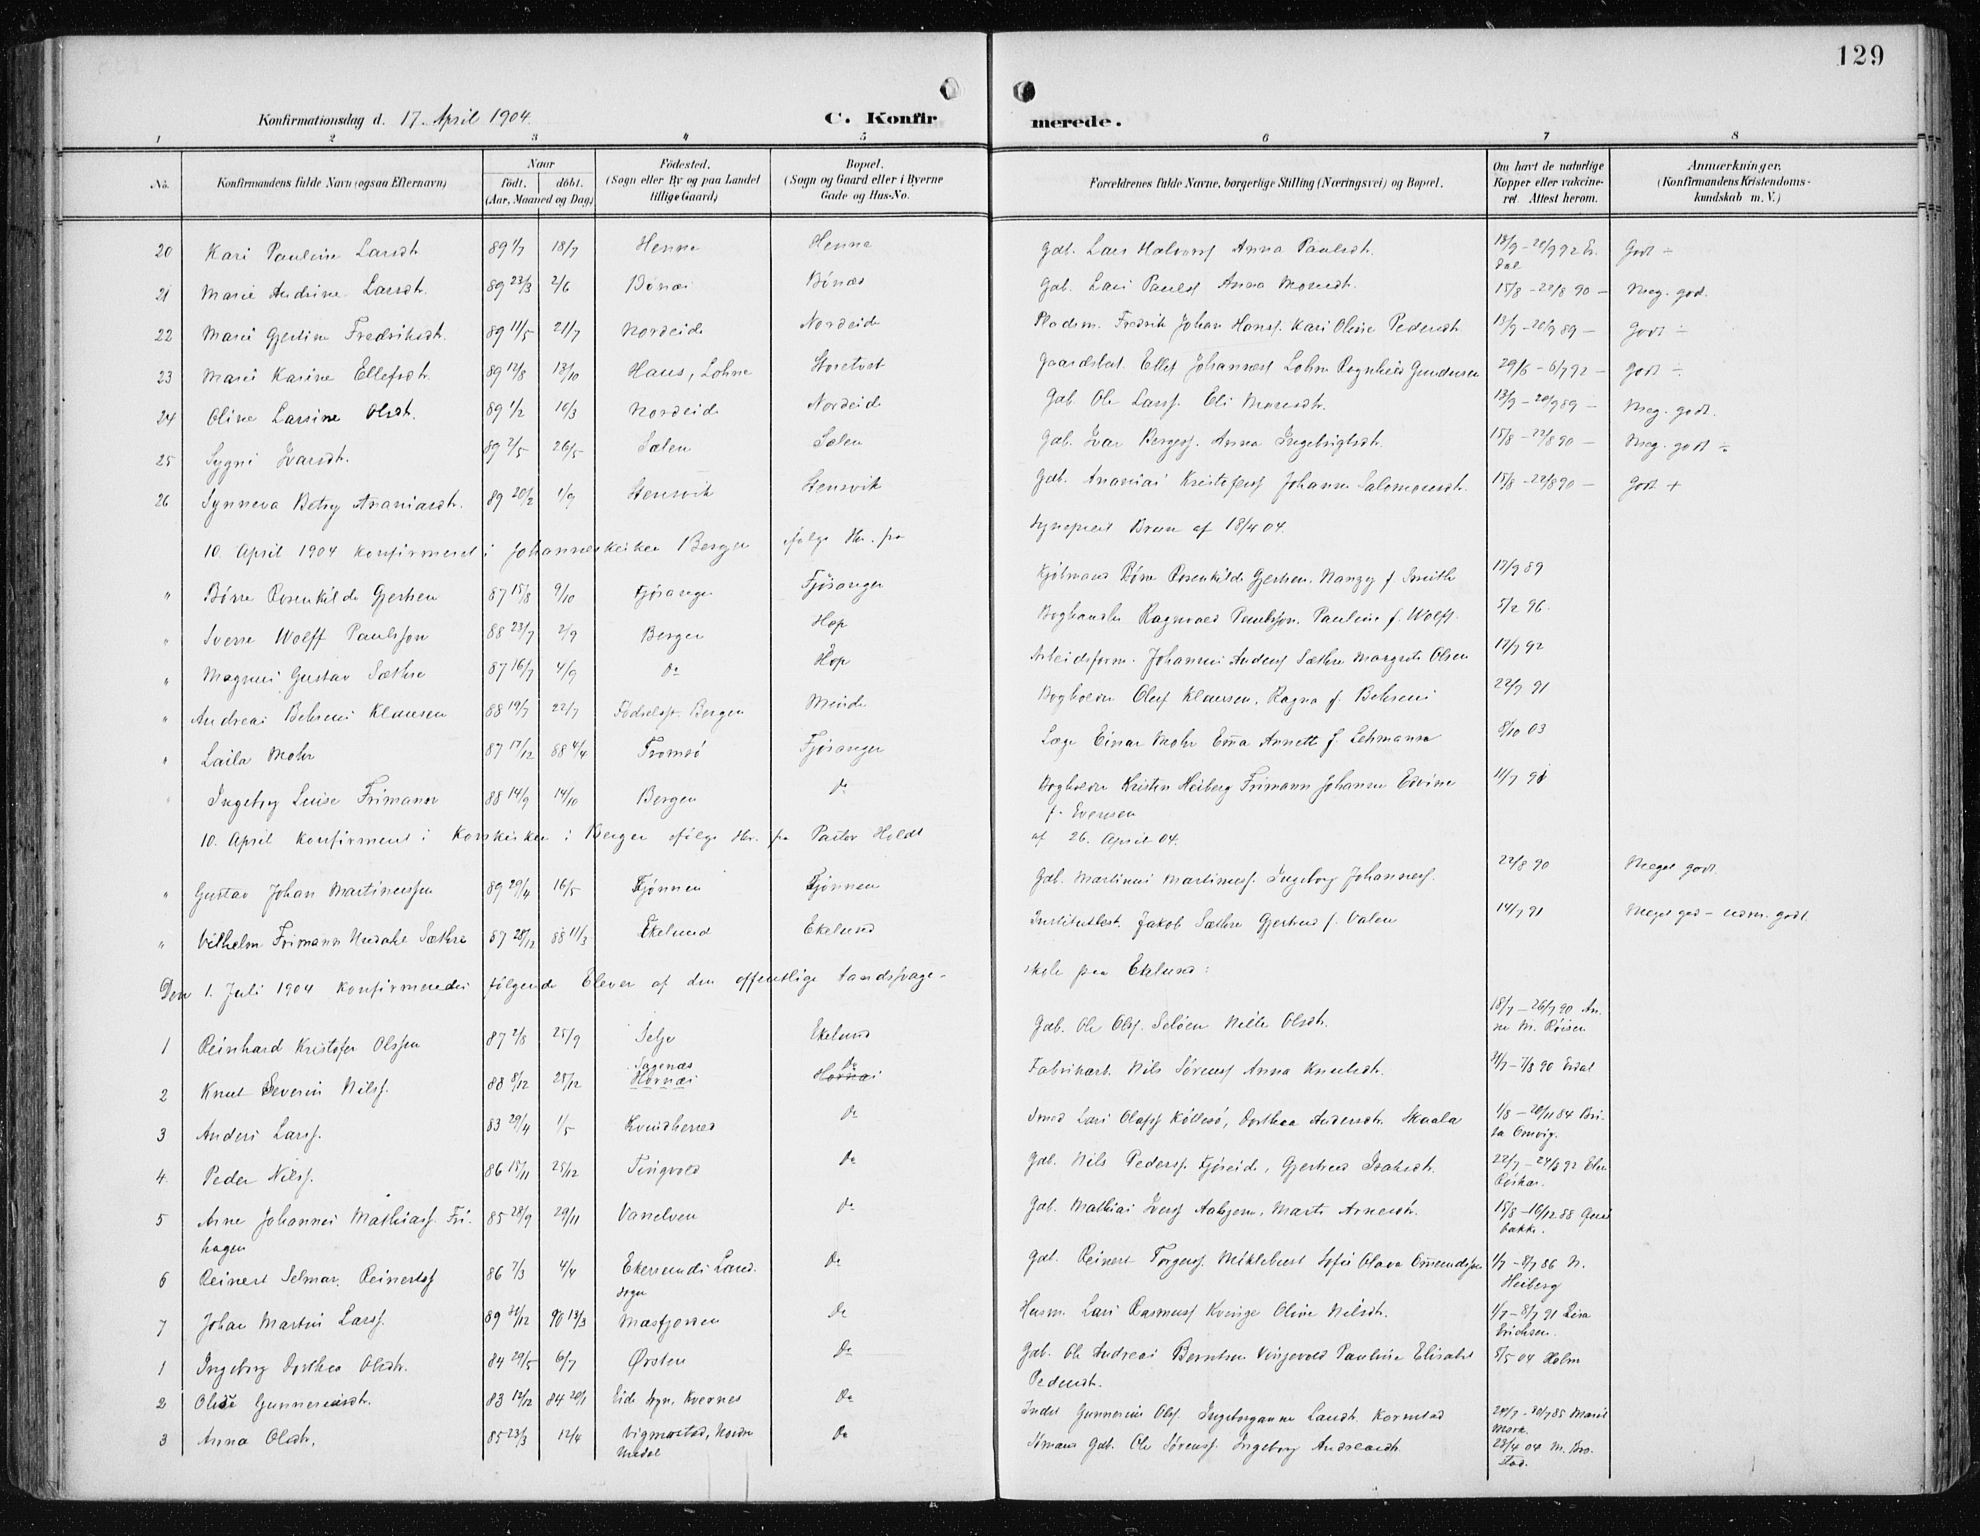 129
Konfirmationsdag d. 17. April 1904.
C. Konfir merede.
1 2 3 4 5 6 7 8
No. Konfirmandens fulde Navn (ogsaa Efternavn) Naar født. døbt. (Aar, Maaned og Dag) Fødested. (Sogn eller By og paa Landet tillige Gaard) Bopæl. (Sogn og Gaard eller i Byerne Gade og Hus-No. Forældrenes fulde Navne, borgerlige Stilling (Næringsvei) og Bopæl. Om havt de naturlige Kopper eller vakcineret Attest herom. Anmærkninger. (Konfirmandens Kristendomskundskab m. V.)
20 Kari Pauline Larsdt. 89 1/7 18/7 Henne Henne Gdb. Lars Halvorss Anna Paulsdt. 13/9 – 20/9 92 Er dal Godt ÷
21 Marie Andrine Larsdt. 89 23/3 2/6 Bønæs Bønæs Gdb. Lars Paulss Anna Monsdt. 15/8 – 22/8 90 – Meg. god.
22 Marie Gjertine Fredriksdt. 89 11/5 21/7 Nordeide Nordeide Pladsm. Fredrik Johan Hanss. Kari Oline Pedersdt 13/9 – 20/9 89 – Godt ÷
23 Marie Karine Ellefsdt. 89 12/8 13/10 Haus, Lohne Storetvet Gaardsbest. Ellef Johanness Lohne Rognhild Gundersen 29/6 – 6/7 92 – Godt ÷
24 Oline Larsine Olsdt. 89 1/2 10/3 Nordeide Nordeide Gdb. Ole Larss. Eli Monsdt. 13/9 – 20/9 89 – Meg. godt.
25 Sygni Ivarsdt. 89 2/5 26/5 Sælen Sælen Gdb. Ivar Bergess. Anna Ingebrigtsdt. 15/8 – 22/8 90 – Meg. godt ÷
26 Synneva Betsy Ananiasdt. 89 20/2 1/9 Stensvik Stensvik Gdb. Ananias Kristofers Johanne Salomonsdt. 15/8 – 22/8 90 – Godt +
10. April 1904 konfirmeret i Johanneskirken Bergen ifølge Skr. fra Sognepræst Brun af 18/4 04.
" Børre Rosenkilde Gjertsen 87 15/8 9/10 Fjøsanger Fjøsanger Kjøbmand Børre Rosenkilde Gjertsen. Nanzy f. Smith 17/9 89
" Sverre Wolff Paulsson 88 23/7 2/9 Bergen Hop Boghandler Ragnvald Paulsson. Pauline f. Wolff. 5/2 96.
" Magnus Gustav Sæthre 87 16/7 4/9 Do Hop Arbeidsform. Johannes Anderss Sæthre Margrete Olsen 12/7 92
" Andreas Behrens Klausen 88 19/7 22/7 Fødselsst. Bergen Minde Bogholder Oluf Klausen, Ragna f. Behrens 22/7 91
" Laila Mohr 87 17/12 88 4/4 Tromsø Fjøsanger Læge Einar Mohr Emma Annette f. Lehmann 8/10 03
" Ingeborg Luise Frimann 88 14/9 14/10 Bergen Do Bogholder Kristen Heiberg Frimann Johanne Edvine f. Evensen 11/7 91
10. April konfirmeret i Korskirken i Bergen ifølge Skr. fra Pastor Holdt af 26. April 04.
" Gustav Johan Martinussen 89 29/4 16/5 Tjønnen Tjønnen Gdb. Martinus Martinuss. Ingeborg Johanness. 22/8 90 Meget godt.
" Vilhelm Frimann Sæthre 87 28/12 88 11/3 Ekelund Ekelund Institutbest. Jakob Sæthre Gjertrud f. Valen 14/7 91 Meget god – udm. godt
Den 1. Juli 1904 konfirmeredes følgende Elever af den offentlige Aandssvage-skole paa Ekelund:
1 Reinhard Kristofer Olssen 87 2/8 25/9 Selje Ekelund Gdb. Ole Olss. Seløen Nille Olsdt. 18/7 – 26/7 90 An ne M. Røisen
2 Knut Severin Nilss. 88 8/12 25/12 Sagenæs Hornæs Do Hornæs Fabrikarb. Nils Sørenss Anna Knutsdt. 31/7 – 7/8 90 Erdal
3 Anders Larss. 83 29/4 1/5 Kvindherred Do Smed Lars Olafss Køllesø, Dorthea Andersdt. Skaala 1/8 – 20/11 84 Bri ta Omvig.
4. Peder Nilss. 86 15/11 25/12 Tingvold Do Gdb. Nils Pederss. Fjøseide, Gjertrud Isaksdt. 22/7 – 24/8 92
5 Arne Johannes Mathiass. Fri- hagen 85 28/9 29/11 Vanelven Do Gdb. Mathias Iverss Aahjem, Marte Arnesdt. 15/8 – 16/12 88 bakke.
6 Reinert Selmar Reinertss 86 7/3 4/4 Ekersunds Land. sogn Do Gdb. Reinert Torgerss. Miklebust Sofie Olava Ommundsen 1/7 – 8/7 86 N. Heiberg
7 Johan Martin Larss. 89 31/12 90 13/3 Masfjorden Do Husm. Lars Rasmuss Kvinge Oline Nilsdt. 1/7 – 8/7 91 Lisa Erichsen.
1 Ingeborg Dorthea Olsdt. 84 29/5 6/7 Ørsten Do Gdb. Ole Andreas Berntsen Vinjevold Pauline Elisabet Pedersdt. 8/5 04 Holm
2 Oline Gunneriusdt. 83 12/12 84 20/1 Eide sogn, Kvernes Do Inders Gunnerius Olss. Ingeborganna Larsdt. Kornstad 20/7 85 Marit Mork.
3 Anna Olsdt. 85 23/3 12/4 Vigmostad, Nordre Undal Do Gdb. Ole Sørenss. Ingeborg Andreasdt. 23/4 04 M. Bro- stad.